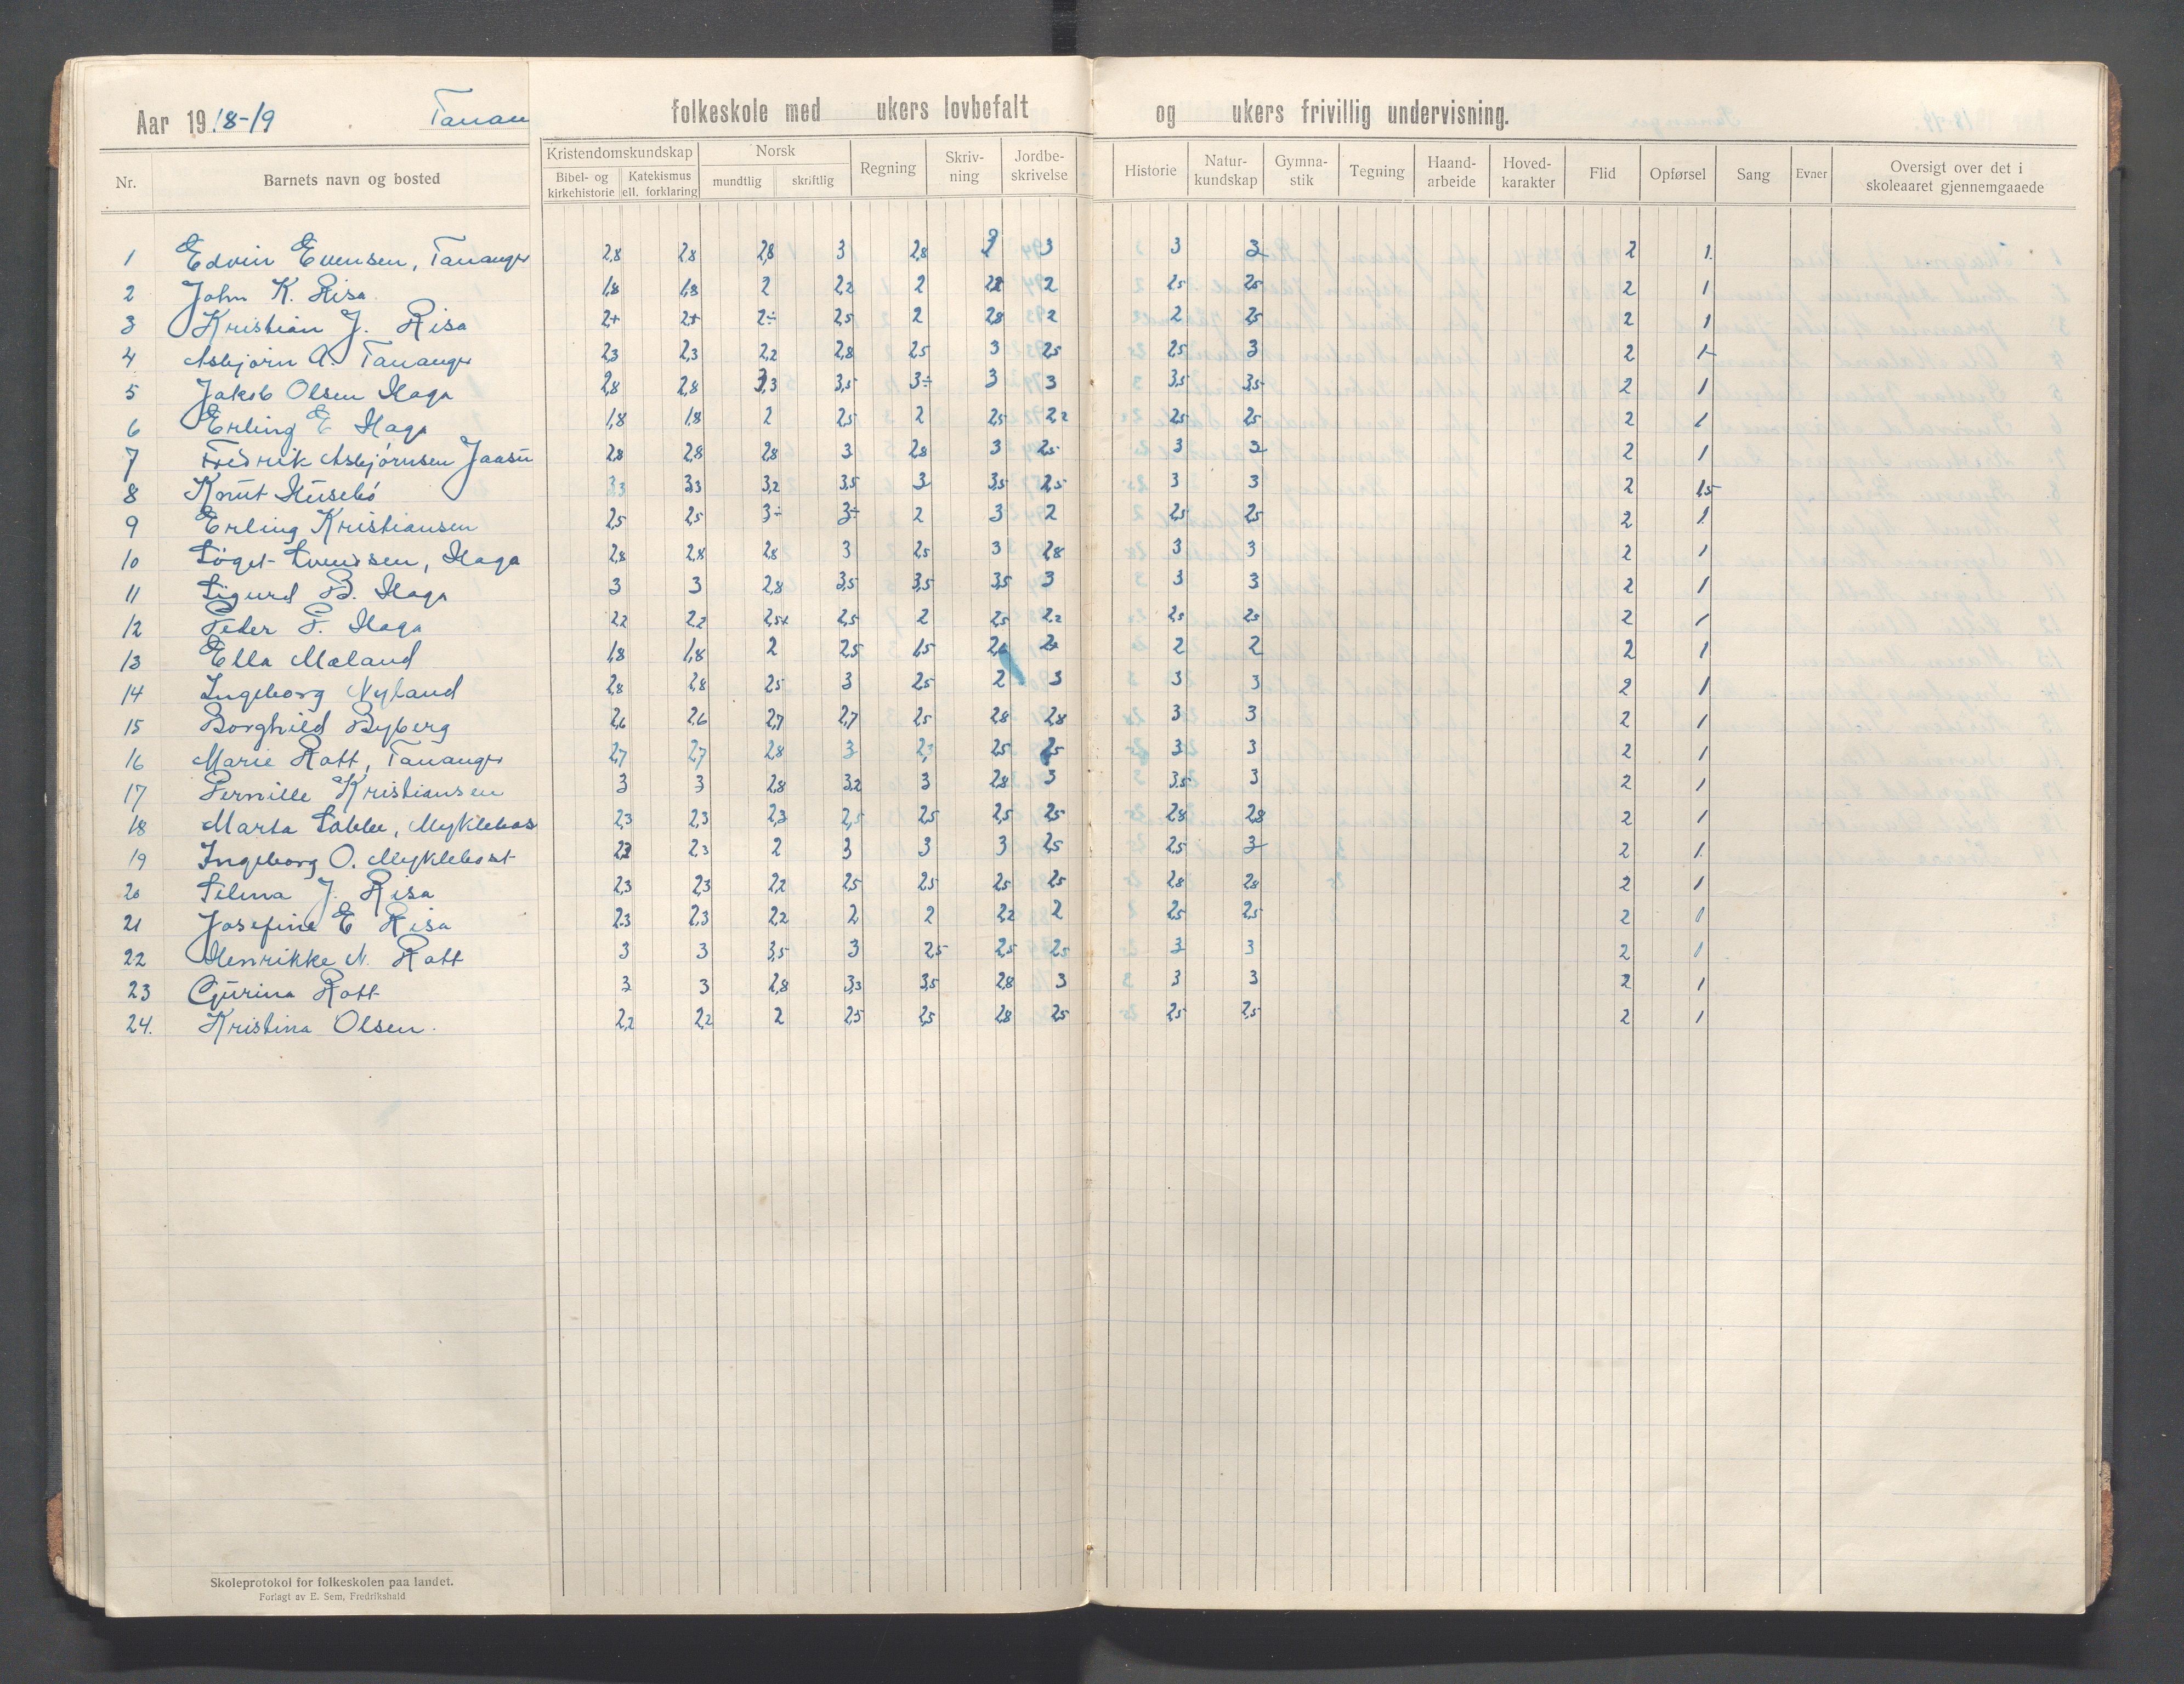 Aar 1918-19 Tanan folkeskole med ukers lovbefalt og ukers frivillig undervisning.
Nr. Barnets navn og bosted Kristendomskundskap Bibel- og kirkehistorie Katekismus ell. forklaring Norsk mundtlig skriftlig Regning Skriv-ning Jordbe-skrivelse Historie Natur-kundskap Gymna-stik Tegning Haand-arbeide Hoved-karakter Flid Opførsel Sang Evner Oversigt over det i skoleaaret gjennemgaaede
1 Edvin Evensen, Tananger 2,8 2,8 2,8 3 2,8 3 3 3 2 1
2 John K. Risa 1,8 1,8 2 2,2 2 2 2,5 2,5 2 1
3 Kristian J. Risa 2+ 2+ 2÷ 2,5 2 2,8 2 2 2,5 2 1
4 Asbjørn A. Tananger 2,3 2,3 2,2 2,8 2,5 3 2,5 2,5 3 2 1
5 Jakob Olsen Haga 2,8 2,8 3,3 3,5 3÷ 3 3 3,5 3,5 2 1
6 Erling E Haga 1,8 1,8 2 2,5 2 2,5 2,2 2,5 2,5 2 1
7 Fredrik Asbjørnsen Jaasu 2,8 2,8 2,8 3 2,8 3 2,5 3 3 2 1
8 Knut Husebø 3,3 3,3 3,2 3,5 3 3,5 2,5 3 3 2 1,5
9 Erling Kristiansen 2,5 2,5 3÷ 3÷ 2 3 2 2,5 2,5 2 1
10 Haga 2,8 2,8 2,8 3 2,5 3 2,8 3 3 2 1
11 Sigurd B. Haga 3 3 2,8 3,5 3,5 3,5 3 3 3 2 1
12 Peder P. Haga 2,2 2,2 2,5+ 2,5 2 2,5 2,2 2,5 2,5 2 1
13 Ella Mæland 1,8 1,8 2 2,5 1,5 2 2 2 1
14 Ingeborg Nyland 2,8 2,8 2,5 3 2,5 2 3 3 3 2 1
15 Borghild Byberg 2,6 2,6 2,7 2,7 2,5 2,8 2,8 3 3 2 1
16 Marie Rott, Tananger 2,7 2,7 2,8 3 2,3 2,5 2,5 3 3 2 1
17 Pernille Kristiansen 3 3 2,8 3,2 3 2,8 3 3,5 3 2 1
18 Marta Sabbe, Myklebos 2,3 2,3 2,3 2,5 2,5 2,5 2,5 2,8 2,8 2 1
19 Ingeborg O. Myklebost 2,3 2 3 3 3 2,5 2,5 3 2 1
20 Selma J. Risa 2,3 2,3 2,2 2,5 2,5 2,5 2,5 2,8 2,8 2 1
21 Josefine E Risa 2,3 2,3 2,2 2 2 2,2 2 2,5 2,5 2 1
22 Henrikke N. Rott 3 3 3,5 3 2,5 2,5 2,5 3 3 2 1
23 Gurina Rott 3 3 2,8 3,3 3,5 2,8 3 3 3 2 1
24. Kristina Olsen. 2,2 2,2 2 2,5 2,5 2,8 2,5 2,5 2,5 2 1
Skoleprotokol for folkeskolen paa landet.
Forlagt av E. Sem, Fredrikshald